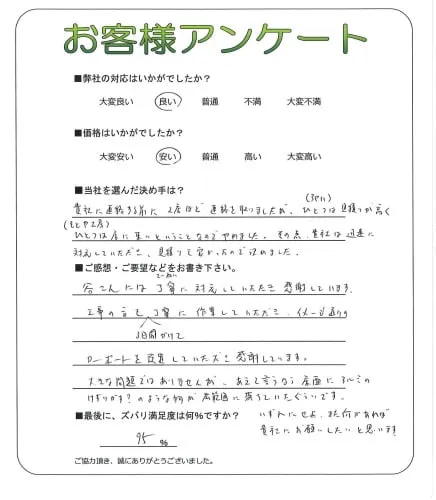 お客様アンケート
■弊社の対応はいかがでしたか?
大変良い 良い 普通 不満 大変不満
■価格はいかがでしたか?
大変安い 安い 普通 高い 大変高い
■当社を選んだ決め手は?
貴社に連絡する前に 2店ほど 連絡を取りましたが、ひとつは 見積りが高く
ひとつは 庭に重いということなのでやめました。その点、貴社は迅速に
対応していただき、見積りも安かったので決めました。
■ご感想・ご要望などをお書き下さい。
さんには 丁寧に 対応していただき 感謝しています。
工事の方も 丁寧に 作業していただき、イメージ通りの
3日間かけて
カーポートを設置していただき感謝しています。
大きな問題ではありませんが、あえて言うなら 屋面に アルミの
けずりかす?のような物が 広範囲に 落ちていたぐらいです。
■最後に、ズバリ満足度は何%ですか?
いずれにせよ、また何かあれば
貴社にお願いしたいと思います!
95 %
ご協力頂き、誠にありがとうございました。